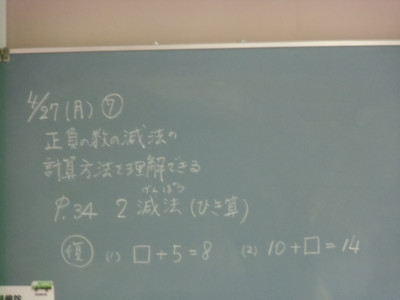 4/27(月) ⑦
正負の数の減法の
計算方法で理解できる
P.34 2 減法(ひき算)
げんぽう
復 (1) □+5=8 (2) 10+□=14